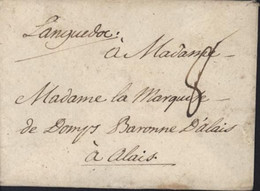 Languedoc:
à Madame
8
Madame la Marquise
de Domps Baronne D'alais
à Alais.